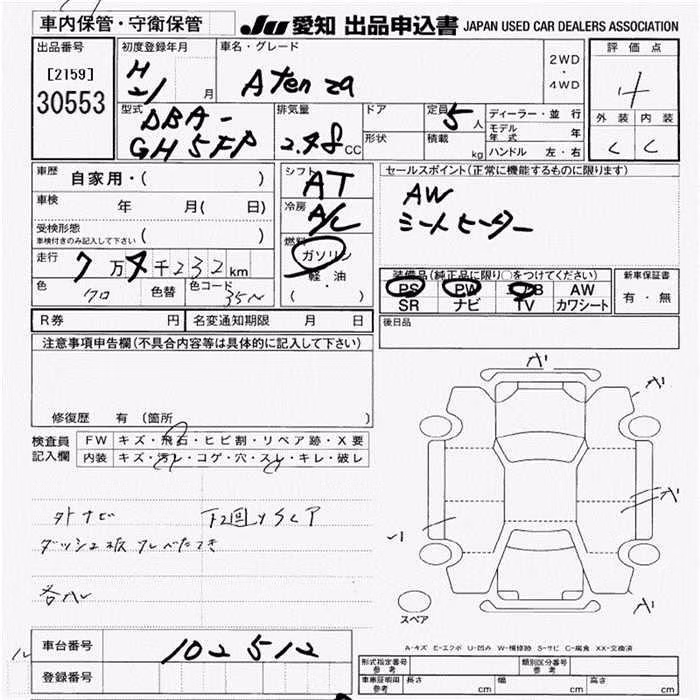 車内保管・守衛保管
JU 愛知 出品申込書 JAPAN USED CAR DEALERS ASSOCIATION
出品番号
[2159]
30553
初度登録年月
H
21 月
車名・グレード
Atenza
2WD
・
4WD
評価点
4
外装 内装
C C
型式
DBA-
GH5FP
排気量
2.48 CC
ドア
形状
定員 5 人
積載 kg
ディーラー・並行
モデル年式 年
ハンドル 左・右
車歴 自家用・( )
車検 年 月( 日)
受検形態
車検付きのみ記入して下さい ( )
走行 7万4千232km
色 クロ 色替 色コード 35N
シフト AT
冷房 A/C
燃料
ガソリン
軽油
・
( )
セールスポイント(正常に機能するものに限ります)
AW
シートヒーター
装備品(純正品に限り○をつけてください)
PS PW AB AW
SR ナビ TV カワシート
新車保証書
有・無
R券 円 名変通知期限 月 日
後日品
注意事項申告欄(不具合内容等は具体的に記入して下さい)
修復歴 有 (箇所 )
検査員
記入欄
FW キズ・飛石・ヒビ割・リペア跡・X要
内装 キズ・汚レ・コゲ・穴・スレ・キレ・破レ
外ナビ
ダッシュ板
A'
A'
A'
A'
スペア
A-キズ E-エクボ U-凹み W-補修跡 S-サビ C-腐食 XX-交換済
車台番号 102512
登録番号
型式指定番号
参考
類別区分番号
参考
車庫証明用
参考
長さ cm 幅 cm 高さ cm